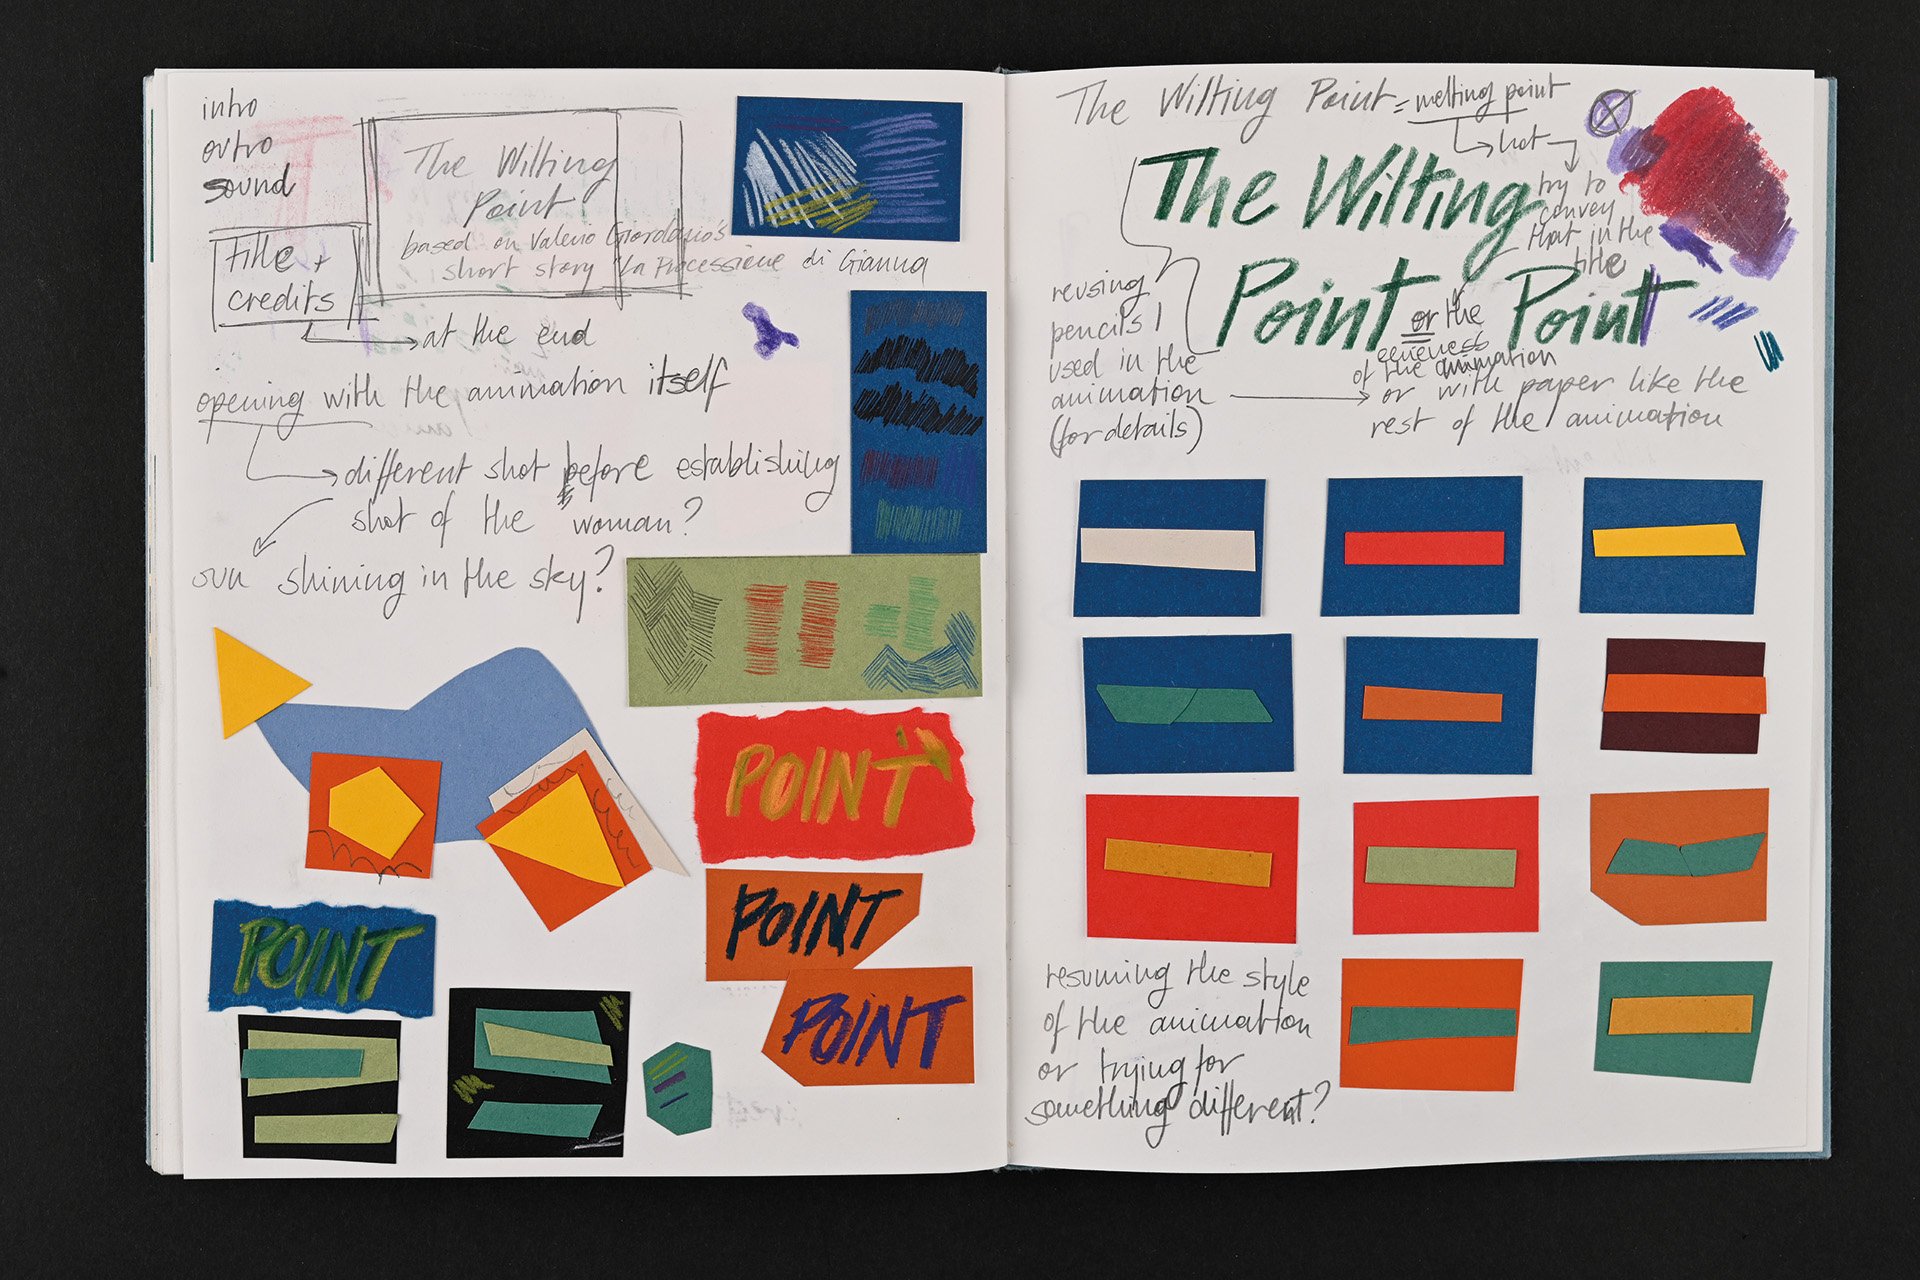 intro
outro
sound
title +
credits
The Wilting
Point
based on Valerio Giordano's
short story "La Processione di Gianna
at the end
opening with the animation itself
different shot before establishing
shot of the woman?
sun shining in the sky?
POINT
POINT
POINT
POINT
The Wilting Point = melting point
hot
The Wilting
Point or the Point
try to
convey
that in the
title
eeriness
of the animation
or with paper like the
rest of the animation
reusing
pencils I
used in the
animation
(for details)
resuming the style
of the animation
or trying for
something different?